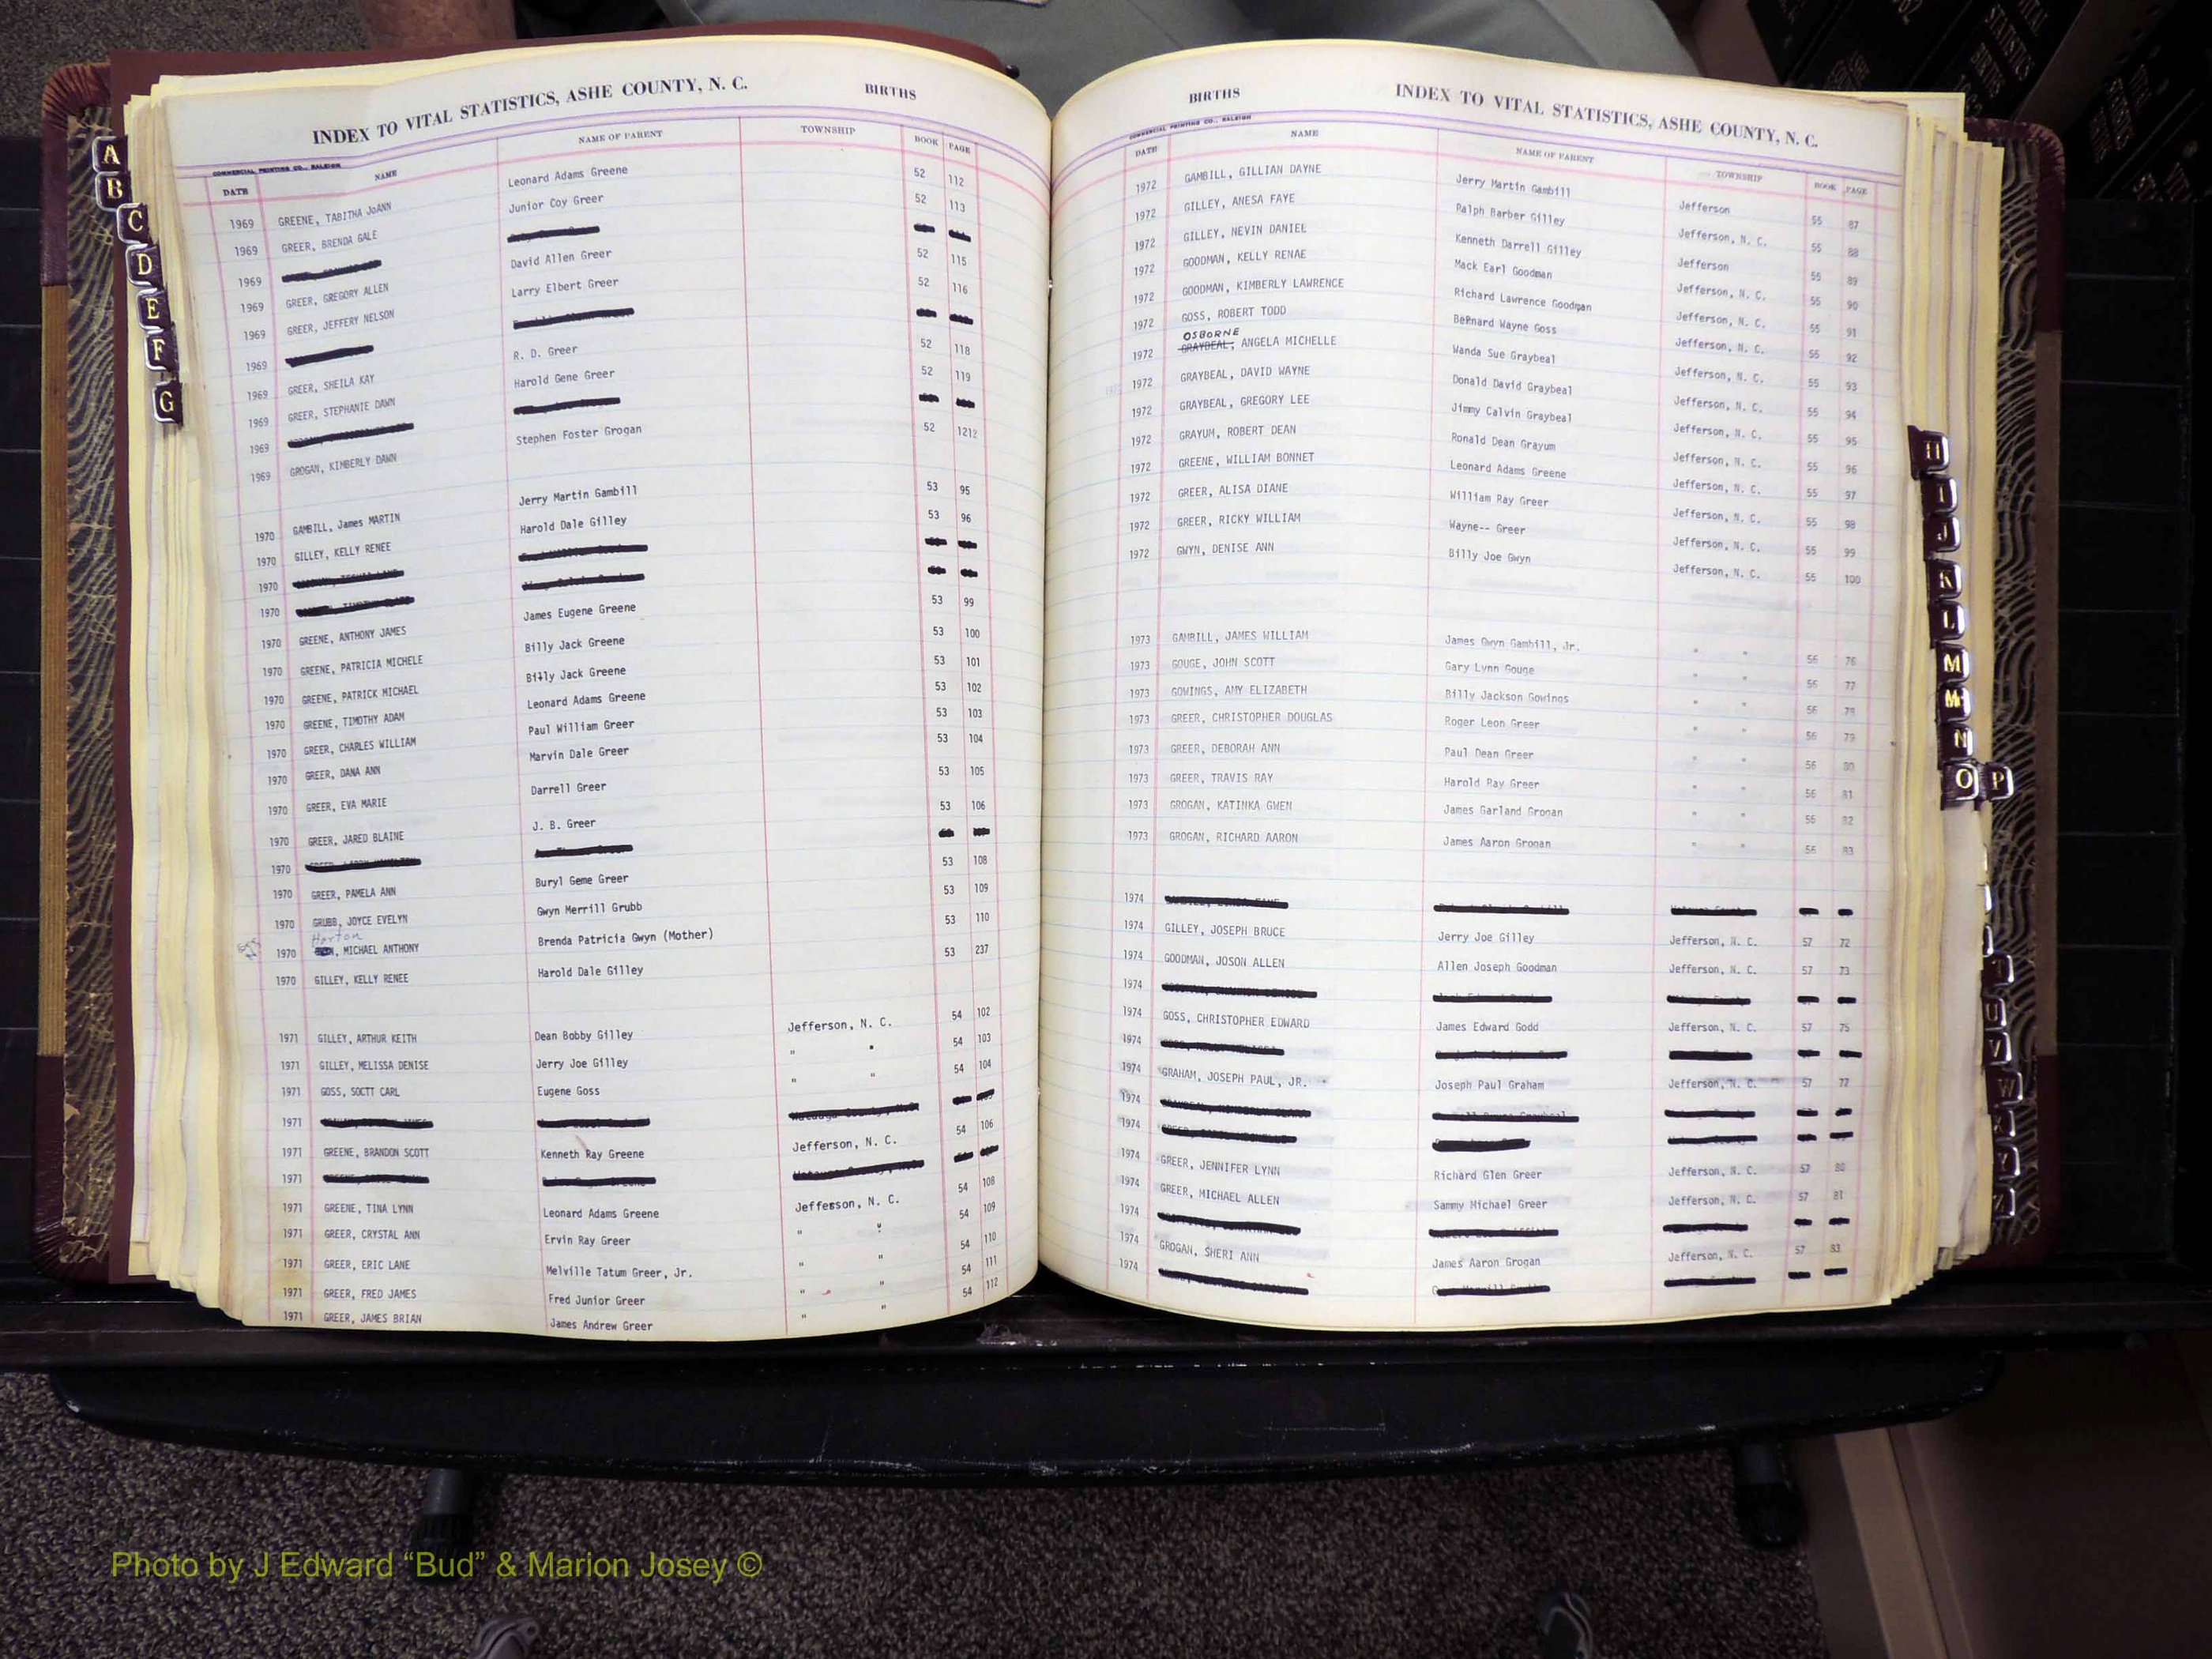 INDEX TO VITAL STATISTICS, ASHE COUNTY, N. C. BIRTHS
COMMERCIAL PRINTING CO., RALEIGH
DATE NAME NAME OF PARENT TOWNSHIP BOOK PAGE
1969 GREENE, TABITHA JoANN Leonard Adams Greene 52 112
1969 GREER, BRENDA GALE Junior Coy Greer 52 113
1969
1969 GREER, GREGORY ALLEN David Allen Greer 52 115
1969 GREER, JEFFERY NELSON Larry Elbert Greer 52 116
1969
1969 GREER, SHEILA KAY R. D. Greer 52 118
1969 GREER, STEPHANIE DAWN Harold Gene Greer 52 119
1969
1969 GROGAN, KIMBERLY DAWN Stephen Foster Grogan 52 1212
1970 GAMBILL, James MARTIN Jerry Martin Gambill 53 95
1970 GILLEY, KELLY RENEE Harold Dale Gilley 53 96
1970
1970
1970 GREENE, ANTHONY JAMES James Eugene Greene 53 99
1970 GREENE, PATRICIA MICHELE Billy Jack Greene 53 100
1970 GREENE, PATRICK MICHAEL Billy Jack Greene 53 101
1970 GREENE, TIMOTHY ADAM Leonard Adams Greene 53 102
1970 GREER, CHARLES WILLIAM Paul William Greer 53 103
1970 GREER, DANA ANN Marvin Dale Greer 53 104
1970 GREER, EVA MARIE Darrell Greer 53 105
1970 GREER, JARED BLAINE J. B. Greer 53 106
1970
1970 GREER, PAMELA ANN Buryl Geme Greer 53 108
1970 GRUBB, JOYCE EVELYN Gwyn Merrill Grubb 53 109
Horton
1970 , MICHAEL ANTHONY Brenda Patricia Gwyn (Mother) 53 110
1970 GILLEY, KELLY RENEE Harold Dale Gilley 53 237
1971 GILLEY, ARTHUR KEITH Dean Bobby Gilley Jefferson, N. C. 54 102
1971 GILLEY, MELISSA DENISE Jerry Joe Gilley " " 54 103
1971 GOSS, SOCTT CARL Eugene Goss " " 54 104
1971
1971 GREENE, BRANDON SCOTT Kenneth Ray Greene Jefferson, N. C. 54 106
1971
1971 GREENE, TINA LYNN Leonard Adams Greene Jefferson, N. C. 54 108
1971 GREER, CRYSTAL ANN Ervin Ray Greer " " 54 109
1971 GREER, ERIC LANE Melville Tatum Greer, Jr. " " 54 110
1971 GREER, FRED JAMES Fred Junior Greer " " 54 111
1971 GREER, JAMES BRIAN James Andrew Greer " " 54 112
BIRTHS INDEX TO VITAL STATISTICS, ASHE COUNTY, N. C.
COMMERCIAL PRINTING CO., RALEIGH
DATE NAME NAME OF PARENT TOWNSHIP BOOK PAGE
1972 GAMBILL, GILLIAN DAYNE Jerry Martin Gambill Jefferson 55 87
1972 GILLEY, ANESA FAYE Ralph Barber Gilley Jefferson, N. C. 55 88
1972 GILLEY, NEVIN DANIEL Kenneth Darrell Gilley Jefferson 55 89
1972 GOODMAN, KELLY RENAE Mack Earl Goodman Jefferson, N. C. 55 90
1972 GOODMAN, KIMBERLY LAWRENCE Richard Lawrence Goodman Jefferson, N. C. 55 91
1972 GOSS, ROBERT TODD Bernard Wayne Goss Jefferson, N. C. 55 92
OSBORNE
1972 GRAYBEAL, ANGELA MICHELLE Wanda Sue Graybeal Jefferson, N. C. 55 93
1972 GRAYBEAL, DAVID WAYNE Donald David Graybeal Jefferson, N. C. 55 94
1972 GRAYBEAL, GREGORY LEE Jimmy Calvin Graybeal Jefferson, N. C. 55 95
1972 GRAYUM, ROBERT DEAN Ronald Dean Grayum Jefferson, N. C. 55 96
1972 GREENE, WILLIAM BONNET Leonard Adams Greene Jefferson, N. C. 55 97
1972 GREER, ALISA DIANE William Ray Greer Jefferson, N. C. 55 98
1972 GREER, RICKY WILLIAM Wayne-- Greer Jefferson, N. C. 55 99
1972 GWYN, DENISE ANN Billy Joe Gwyn Jefferson, N. C. 55 100
1973 GAMBILL, JAMES WILLIAM James Gwyn Gambill, Jr. " " 56 76
1973 GOUGE, JOHN SCOTT Gary Lynn Gouge " " 56 77
1973 GOWINGS, AMY ELIZABETH Billy Jackson Gowings " " 56 78
1973 GREER, CHRISTOPHER DOUGLAS Roger Leon Greer " " 56 79
1973 GREER, DEBORAH ANN Paul Dean Greer " " 56 80
1973 GREER, TRAVIS RAY Harold Ray Greer " " 56 81
1973 GROGAN, KATINKA GWEN James Garland Grogan " " 56 82
1973 GROGAN, RICHARD AARON James Aaron Grogan " " 56 83
1974
1974 GILLEY, JOSEPH BRUCE Jerry Joe Gilley Jefferson, N. C. 57 72
1974 GOODMAN, JOSON ALLEN Allen Joseph Goodman Jefferson, N. C. 57 73
1974
1974 GOSS, CHRISTOPHER EDWARD James Edward Godd Jefferson, N. C. 57 75
1974
1974 GRAHAM, JOSEPH PAUL, JR. Joseph Paul Graham Jefferson, N. C. 57 77
1974
1974
1974 GREER, JENNIFER LYNN Richard Glen Greer Jefferson, N. C. 57 80
1974 GREER, MICHAEL ALLEN Sammy Michael Greer Jefferson, N. C. 57 81
1974
1974 GROGAN, SHERI ANN James Aaron Grogan Jefferson, N. C. 57 83
1974
A
B
C
D
E
F
G
H
I
J
K
L
M
Mc
N
O P
T
U
V
W
X
Y
Photo by J Edward “Bud” & Marion Josey ©